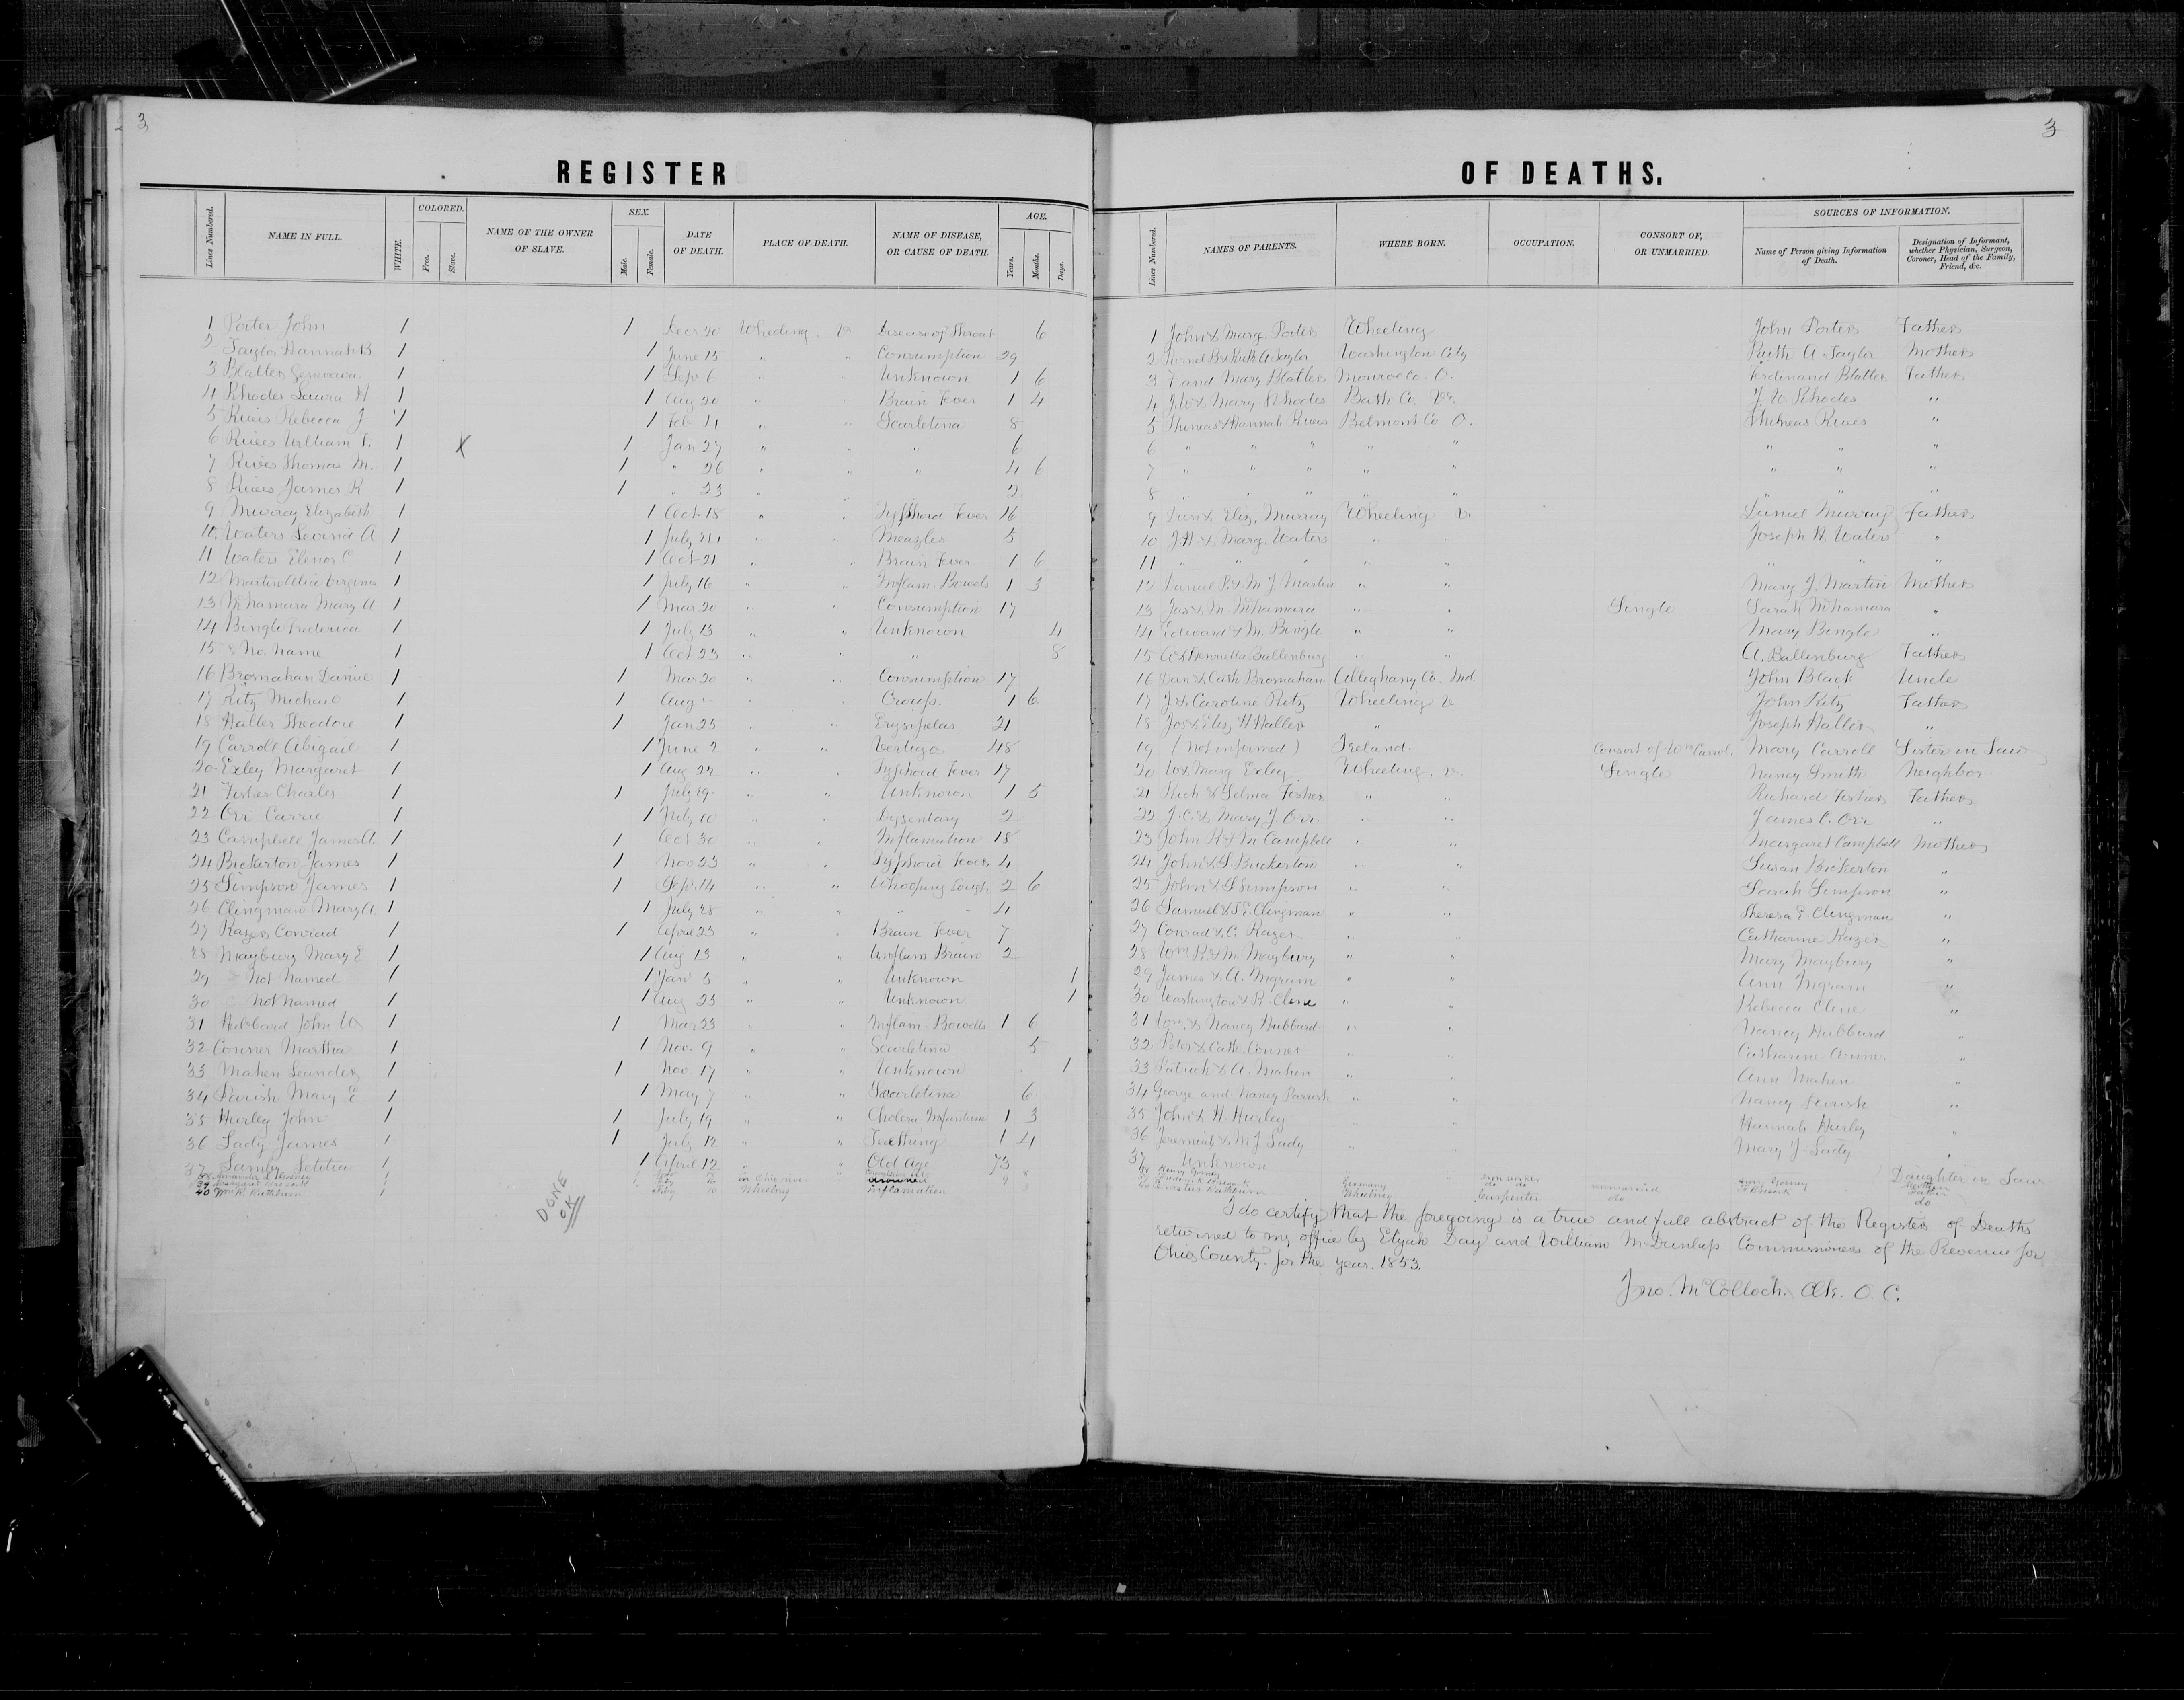 3
REGISTER
Lines Numbered. NAME IN FULL. WHITE. COLORED. Free. Slave. NAME OF THE OWNER OF SLAVE. SEX. Male. Female. DATE OF DEATH. PLACE OF DEATH. NAME OF DISEASE, OR CAUSE OF DEATH. AGE. Years. Months. Days.
1 Porter John 1 1 Decr 20 Wheeling. Va Disease of Throat 6
2 Taylor Hannah B 1 1 June 15 " " Consumption 29
3 Blatter 1 1 Sep 6 " " Unknown 1 6
4 Rhodes Laura H 1 1 Aug 20 " " Brain Fever 1 4
5 Rives Rebecca J 1 1 Feb 4 " " Scarletina 8
6 Rives William T. 1 X 1 Jan 27 " " " 6
7 Rives Thomas M. 1 1 " 26 " " " 4 6
8 Rives James K 1 1 " 23 " " 2
9 Murray Elizabeth 1 1 Oct 18 " " Typhoid Fever 16
10 Waters Levina A 1 1 July " " Measles 5
11 Waters Elenor C 1 1 Oct 21 " " Brain Fever 1 6
12 Martin Alice Virginia 1 1 July 16 " " Inflam. Bowels 1 3
13 McNamara Mary A 1 1 Mar 20 " " Consumption 17
14 Bingle Frederica 1 1 July 13 " " Unknown 4
15 No. Name 1 1 Oct 23 " " " 8
16 Brosnahan Daniel 1 1 Mar 20 " " Consumption 17
17 Ritz Michael 1 1 Aug " " Croup. 1 6
18 Haller Theodore 1 1 Jan 25 " " Erysipelas 21
19 Carroll Abigail 1 1 June 2 " " Vertigo 48
20 Exley Margaret 1 1 Aug 22 " " Typhoid Fever 17
21 Fisher Charles 1 1 July 29 " " Unknown 1 5
22 Orr Carrie 1 1 July 10 " " Dysentary 2
23 Campbell James A. 1 1 Oct 30 " " Inflamation 18
24 Bickerton James 1 1 Nov 23 " " Typhoid Fever 4
25 Simpson James 1 1 Sep. 14 " " Whooping Cough 2 6
26 Clingman Mary A. 1 1 July 28 " " " " 4
27 Razer Conrad 1 1 April 23 " " Brain Fever 7
28 Maybury Mary E 1 1 Aug 13 " " Inflam Brain 2
29 Not Named 1 1 Jan 3 " " Unknown 1
30 Not Named 1 1 Aug 25 " " Unknown 1
31 Hubbard John W 1 1 Mar 23 " " Inflam. Bowells 1 6
32 Conner Martha 1 1 Nov. 9 " " Scarletina 5
33 Mahen Leander 1 1 Nov. 17 " " Unknown 1
34 Parish Mary E 1 1 May 7 " " Scarletina 6
35 Hurley John 1 1 July 19 " " Cholera Infantum 1 3
36 Lady James 1 1 July 12 " " Teething 1 4
37 Letitia 1 1 April 12 " " Old Age 73
38 1
39 Margaret 1 in Ohio river drowned 9
40 Wm R. Rathburn 1 10 Wheeling inflamation
DONE
OK
3
OF DEATHS.
Lines Numbered. NAMES OF PARENTS. WHERE BORN. OCCUPATION. CONSORT OF, OR UNMARRIED. SOURCES OF INFORMATION. Name of Person giving Information of Death. Designation of Informant, whether Physician, Surgeon, Coroner, Head of the Family, Friend, &c.
1 John & Marg. Porter Wheeling John Porter Father
2 B & Ruth A Taylor Washington City Ruth A Taylor Mother
3 F and Mary Blatter Monroe Co. O. Ferdinand Blatter Father
4 J. W & Mary Rhodes Bath Co. Va. J. W Rhodes "
5 Phineas & Hannah Rives Belmont Co O. Phineas Rives "
6 " " " " " " " "
7 " " " " " " " "
8 " " " " " "
9 Dan & Eliz. Murray Wheeling V. Daniel Murray Father
10 J. H. & Marg Waters " " Joseph H. Waters "
11 " " " " " "
12 Daniel R & M J. Martin " " Mary J. Martin Mother
13 Jas & M. McNamara " " Single Sarah McNamara "
14 Edward & M. Bingle " " Mary Bingle "
15 A & Henrietta Ballenburg " " A. Ballenburg Father
16 Dan & Cath Brosnahan Alleghany Co. Md. John Black Uncle
17 J & Caroline Ritz Wheeling V John Ritz Father
18 Jos & Eliz H Haller " Joseph Haller "
19 (not informed) Ireland. Consort of Wm Carrol. Mary Carroll Sister in Law
20 W & Marg Exley Wheeling. V. Single Nancy Smith Neighbor
21 Rich & Selma Fisher " " Richard Fisher Father
22 J. C. & Mary J. Orr. " " James C. Orr "
23 John R & M Campbell " " Margaret Campbell Mother
24 John & S. Bickerton " " Susan Bickerton "
25 John & S Simpson " " Sarah Simpson "
26 Samuel & S. E. Clingman " " Theresa E. Clingman "
27 Conrad & C. Razer " " Catharine Razer "
28 Wm R. & M. Maybury " " Mary Maybury "
29 James & A. Ingram " " Ann Ingram "
30 Washington & R. Cline " " Rebecca Cline "
31 Wm. & Nancy Hubbard " " Nancy Hubbard "
32 Peter & Cath. Conner " " Catharine Conner "
33 Patrick & A. Mahen " " Ann Mahen "
34 George and Nancy Parrish " " Nancy Parish "
35 John & H. Hurley " " Hannah Hurley "
36 Jeremiah & M J Lady " " Mary J Lady "
37 Unknown Daughter in Law
38 Henry " " iron worker
39 Germany do unmarried Father
40 Erastus Rathburn Wheeling Carpenter do do
I do certify that the foregoing is a true and full abstract of the Registers of Deaths
returned to my office by Elijah Day and William McDunlap Commissioners of the Revenue for
Ohio County. for the year. 1853.
Jno. McColloch. Clk. O. C.